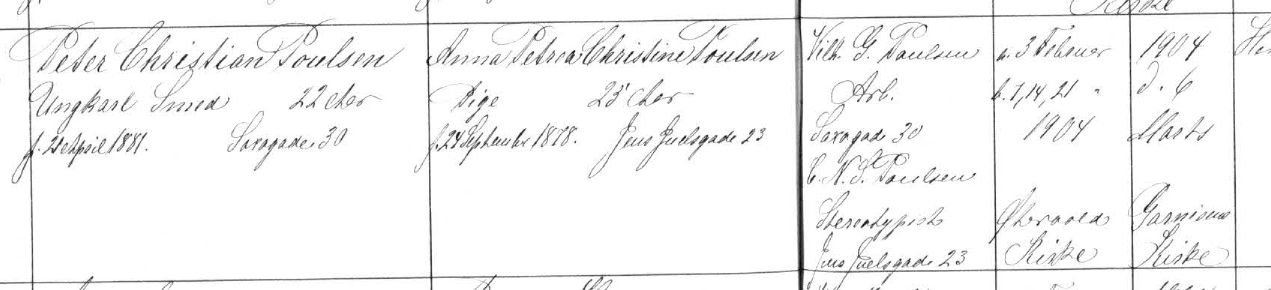 Kirke
Peter Christian Poulsen
Ungkarl Smed 22 Aar
f. 21 April 1881. Saxogade 30
Anna Petrea Christine Poulsen
Pige 25 Aar
f. 24 September 1878. Jens Juelsgade 23
Vilh. G. Poulsen
Arb.
Saxogad 30
C. N. S. Poulsen
Stereotypist
Jens Juelsgade 23
a. 3 Februar
b. 7, 14, 21 "
1904
Kirke
1904
d. 6
Marts
Garnisons
Kirke